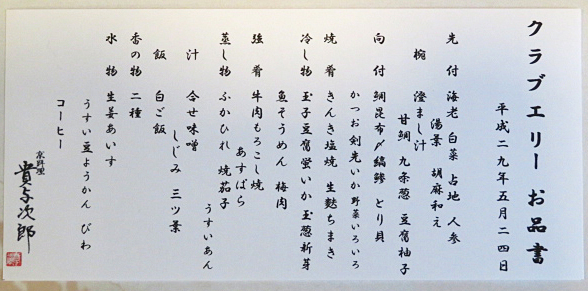 クラブエリー お品書
平成二九年五月二四日
先付 海老 白菜 占地 人参
湯葉 胡麻和え
椀 澄まし汁
甘鯛 九条葱 豆腐柚子
向付 鯛昆布〆縞鯵 とり貝
かつお剣先いか野菜いろいろ
焼肴 きんき塩焼 生麩ちまき
冷し物 玉子豆腐蛍いか玉葱新芽
魚そうめん 梅肉
強肴 牛肉もろこし焼
あすぱら
蒸し物 ふかひれ 焼茄子
うすいあん
汁 合せ味噌
しじみ 三ツ葉
飯 白ご飯
香の物 二種
水物 生姜あいす
うすい豆ようかん びわ
コーヒー
京料理
貴与次郎